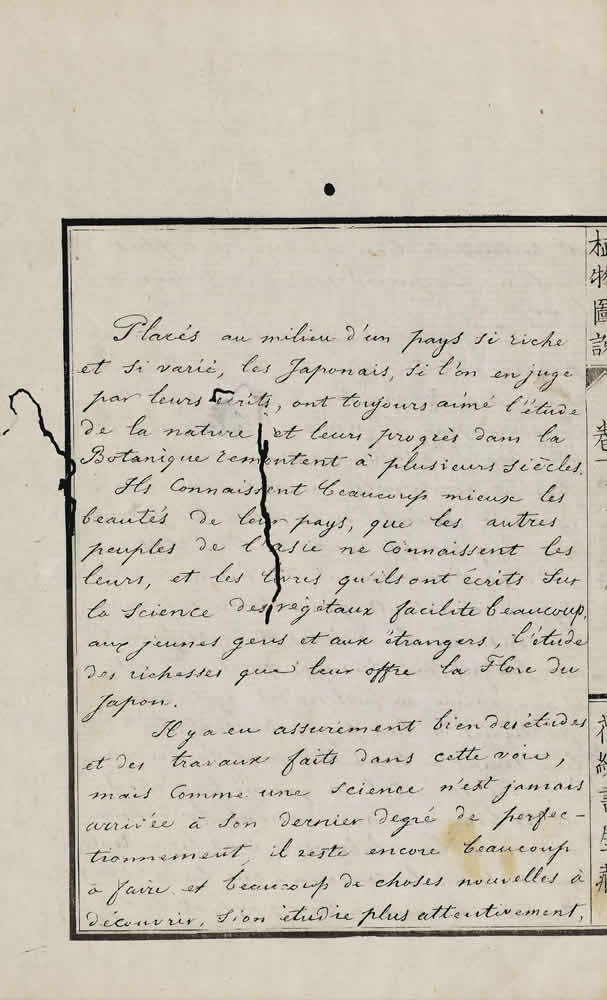 Placés au milieu d'un pays si riche
et si varié, les Japonais, si l'on en juge
par leurs écrits, ont toujours aimé l'étude
de la nature et leurs progrès dans la
Botanique remontent à plusieurs siècles.
Ils connaissent beaucoup mieux les
beautés de leur pays, que les autres
peuples de l'asie ne connaissent les
leurs, et les livres qu'ils ont écrits sur
la science des végétaux facilite beaucoup,
aux jeunes gens et aux étrangers, l'étude
des richesses que leur offre la Flore du
Japon.
Il y a eu assurement bien des études
et des travaux faits dans cette voie,
mais comme une science n'est jamais
arrivée à son dernier degré de perfec-
tionnement, il reste encore beaucoup
à faire et beaucoup de choses nouvelles à
découvrir, si on étudie plus attentivement,
植物圖說
卷一
書屋藏